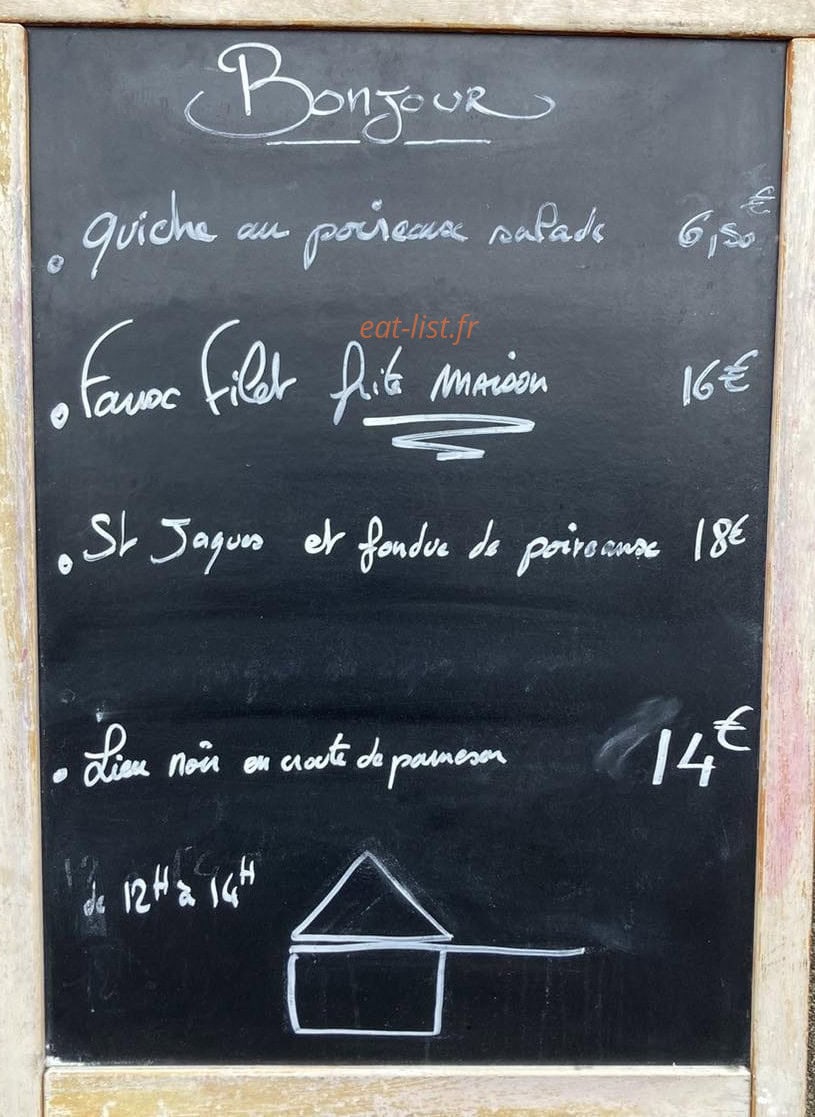 Bonjour
quiche au poireaux salade 6,50€
eat-list.fr
Faux filet frite MAison 16€
St Jaques et fondue de poireaux 18€
Lieu noir en croute de parmesan 14€
de 12H à 14H